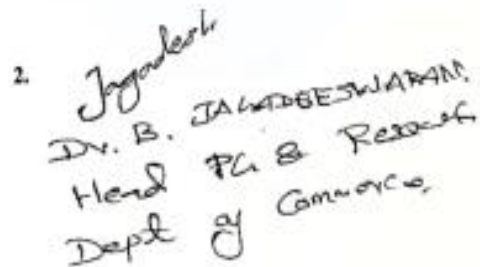 2. Jagadesh
Dr. B. JAGADEESWARAN.
Head PG & Research
Dept of Commerce.